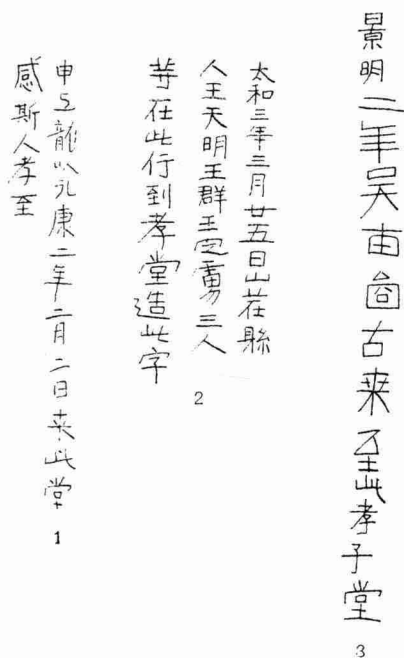 景明二年吴啚古来至此孝子堂
3
太和三年三月廿五日山茌縣
人王天明王群王定虜三人
等在此行到孝堂造此字
2
申龍以永康二年二月二日来此堂
感斯人孝至
1